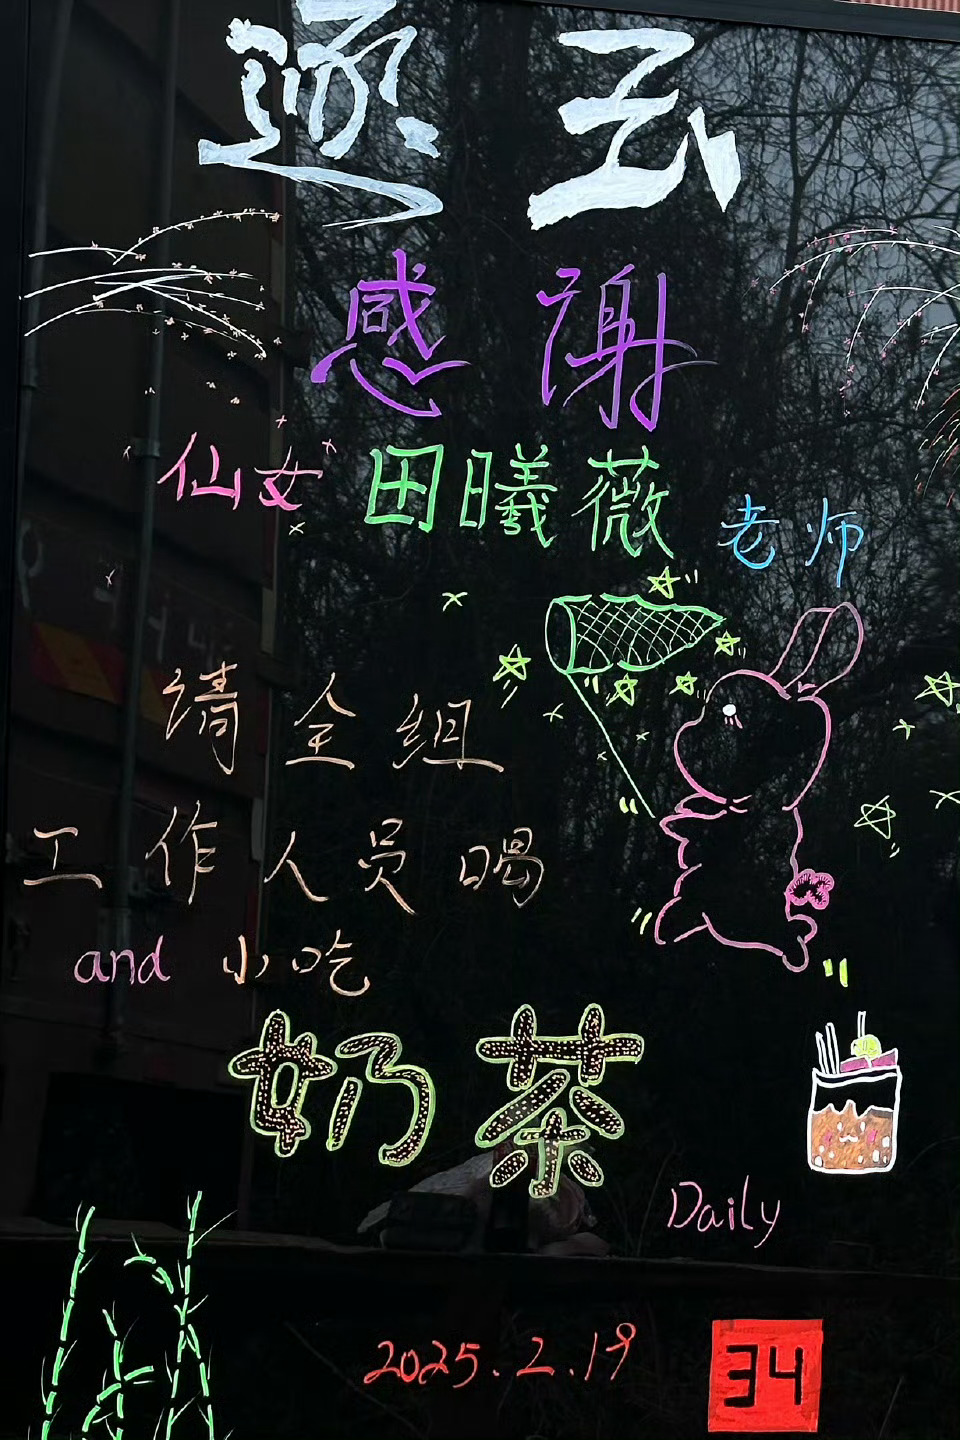 逐云
感谢
仙女田曦薇老师
请全组
工作人员喝
and 小吃
奶茶
Daily
2025.2.19
34